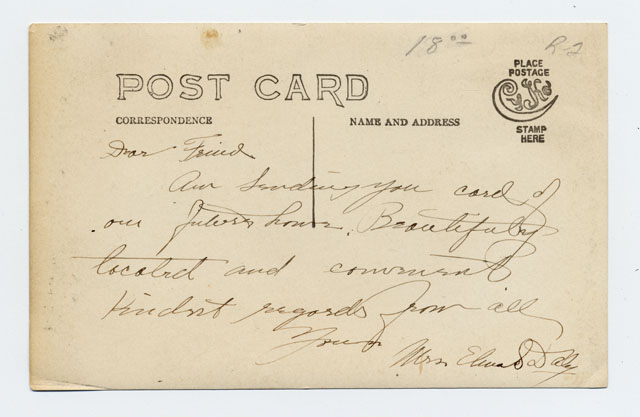 18.00
R-2
PLACE
POSTAGE
STAMP
HERE
POST CARD
CORRESPONDENCE
NAME AND ADDRESS
Dear Friend
Am sending you card of
our future home. Beautifuly
located and convenient
Kindest regards from all
Yours
Mrs